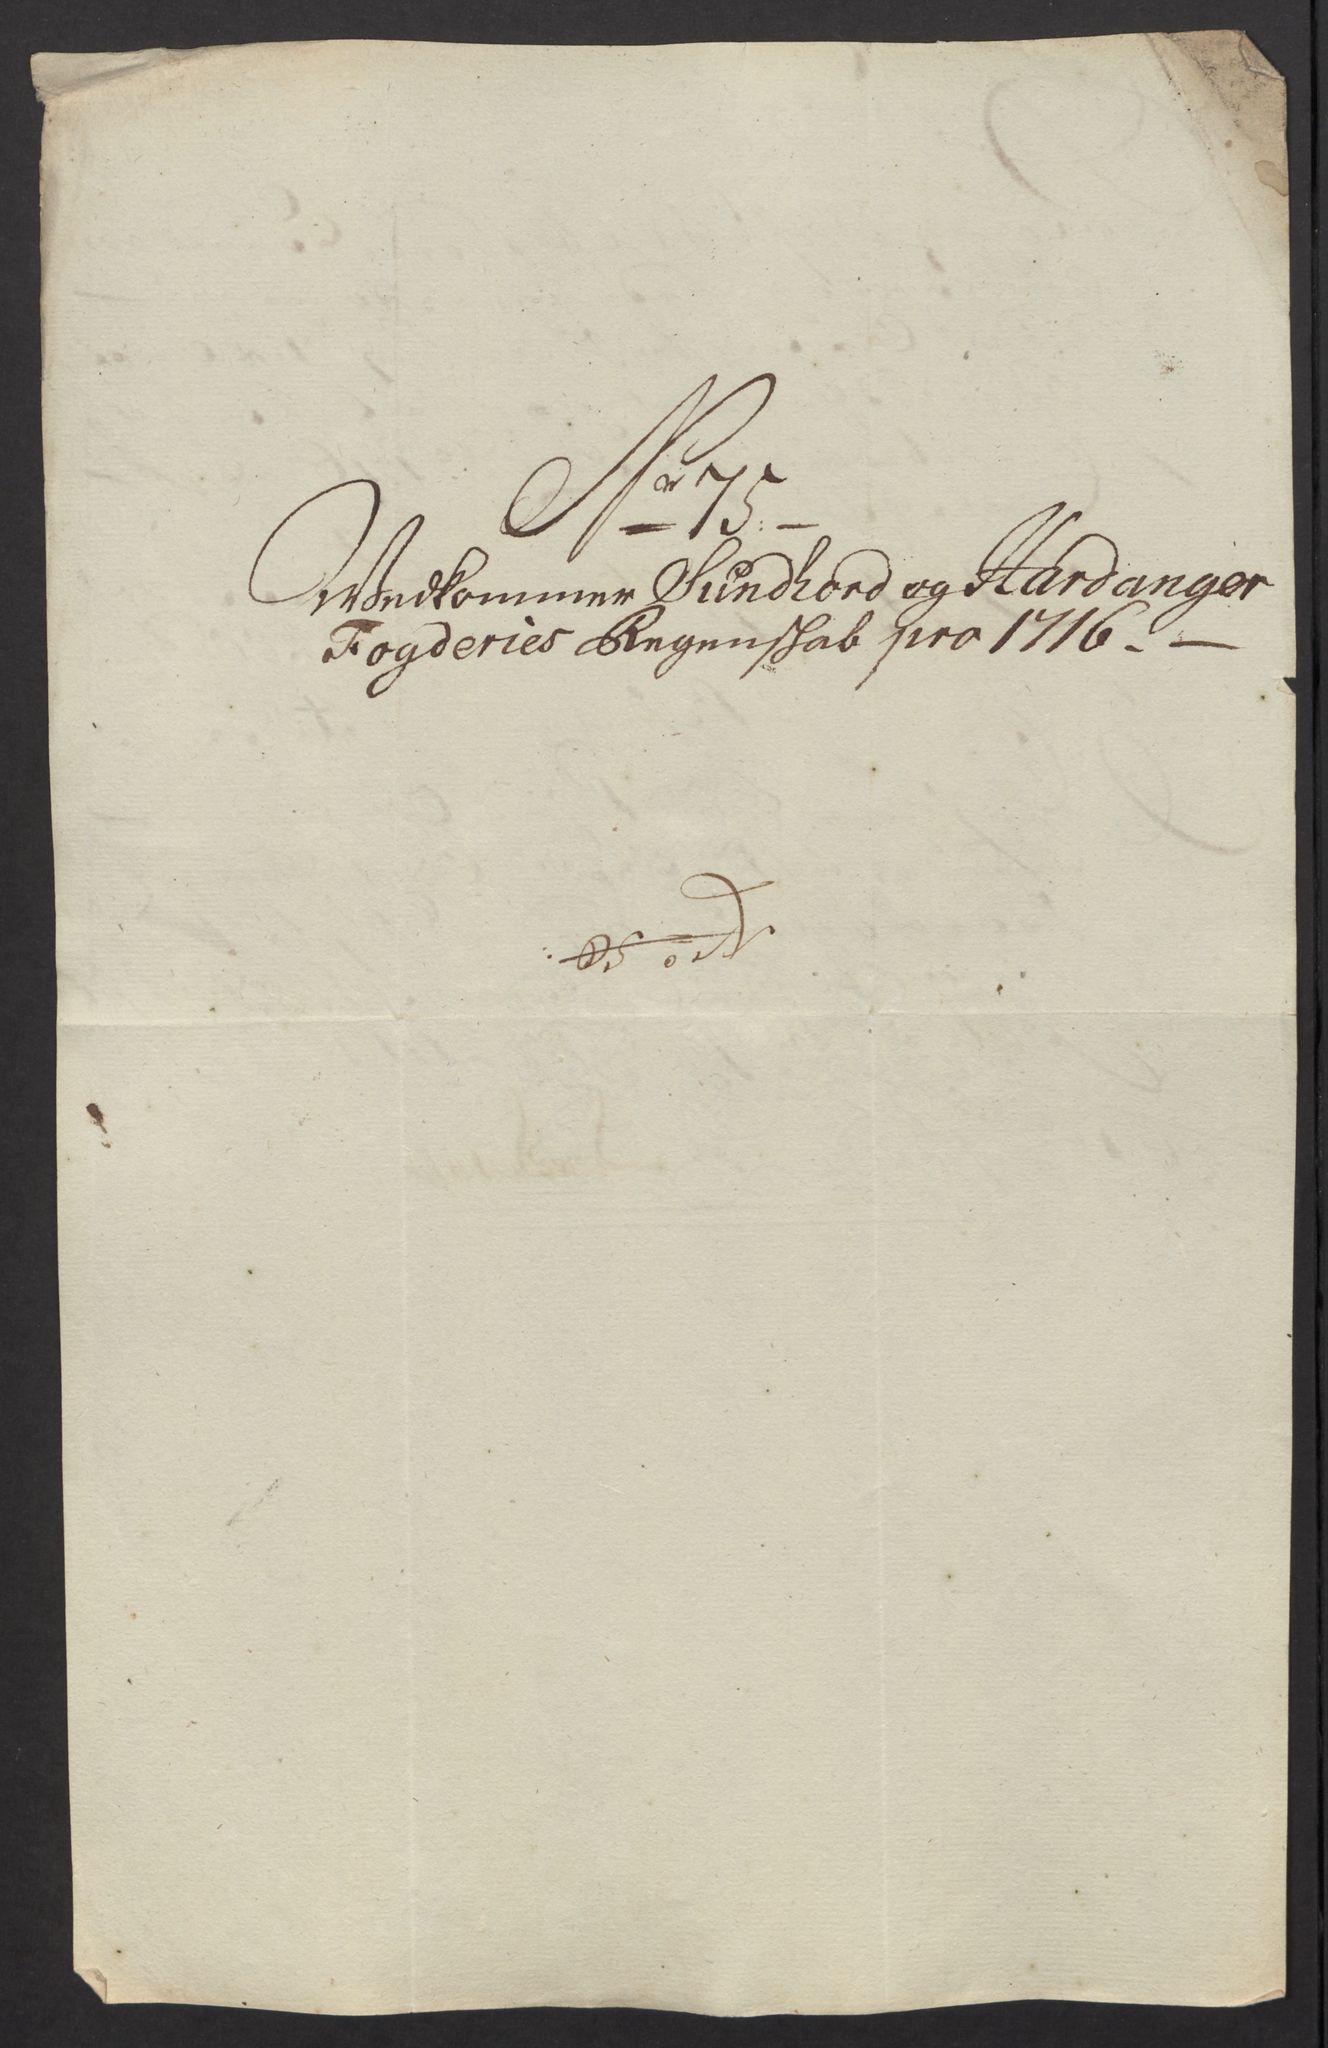 Nr 75.
Wedkommer Sundhord og Hardanger
Fogderies Regenskab pro 1716.